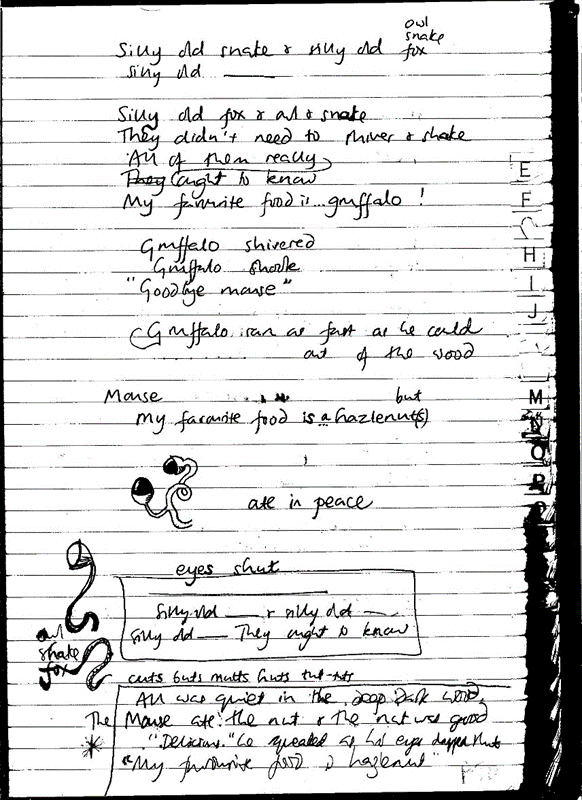 owl
snake
Silly old snake & silly old fox
silly old
Silly old fox & owl & snake
They didn't need to shiver & shake
All of them really
They ought to know
My favourite food is...gruffalo !
Gruffalo shivered
Gruffalo shook
"Goodbye mouse"
Gruffalo ran as fast as he could
out of the wood
Mouse but
my favourite food is a hazlenut(s)
ate in peace
eyes shut
silly old & silly old
silly old They ought to know
owl
snake
fox
cuts buts mutts huts tut-tuts
All was quiet in the deep dark wood,
The Mouse ate the nut & the nut was good
"Delicious." he squeaked as his eyes shut
"My favourite food is hazlenut"
E
F
H
I
J
M
N
O
P